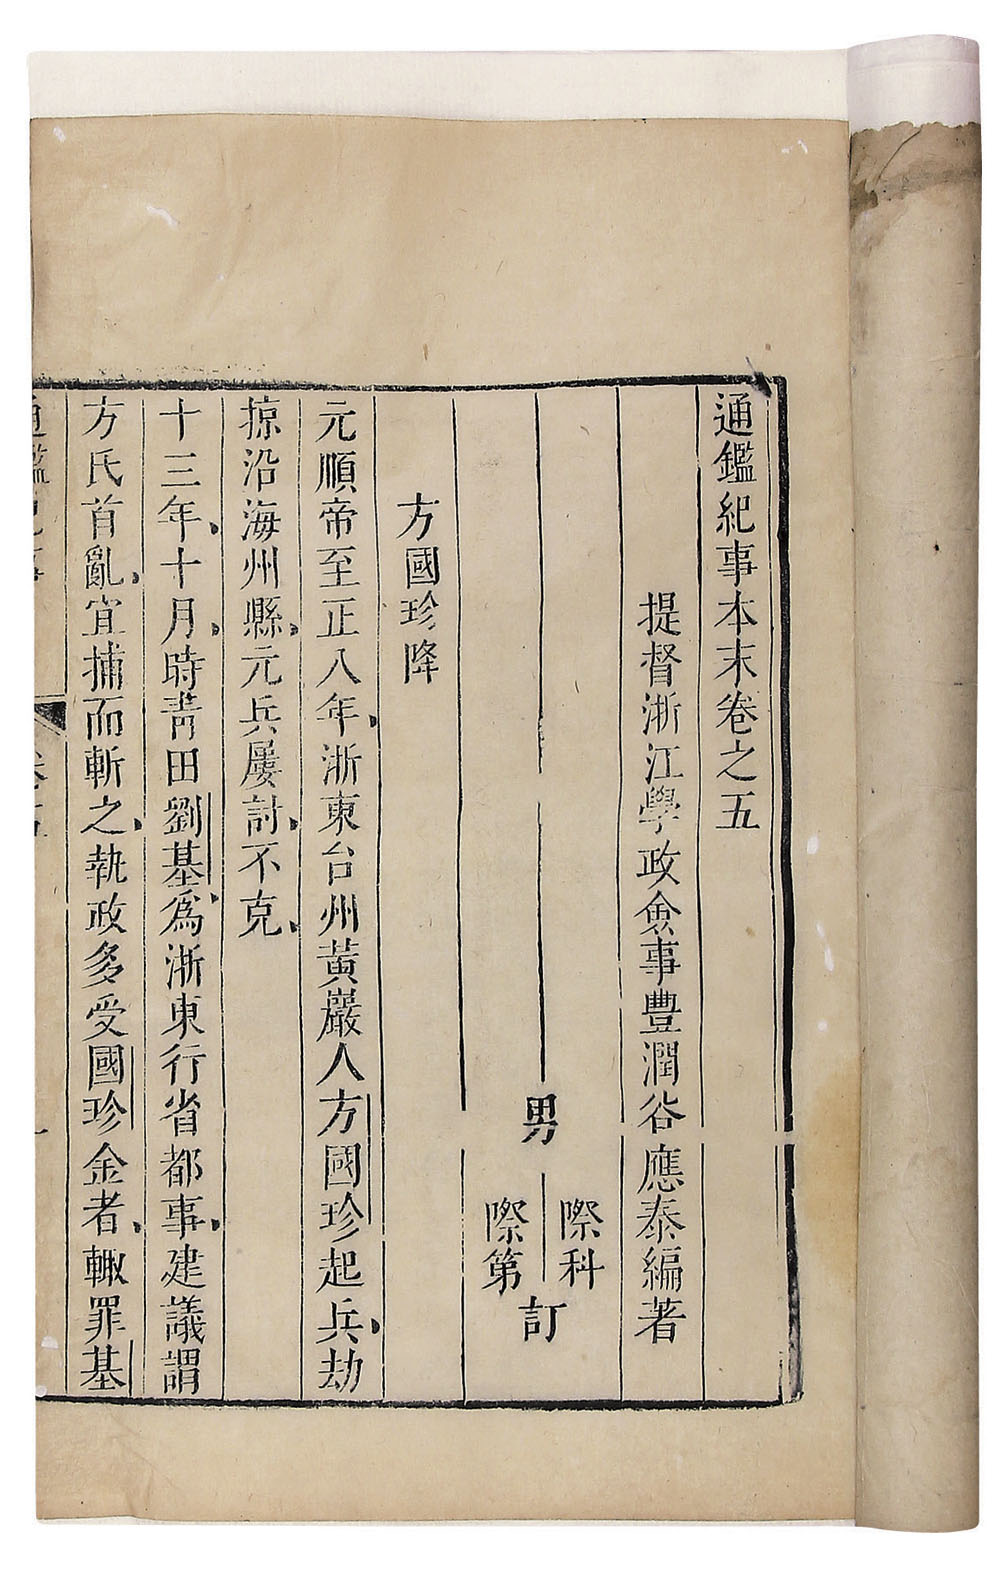 通鑑紀事本末卷之五
提督浙江學政僉事豐潤谷應泰編著
男
際科
際第
訂
方國珍降
元順帝至正八年浙東台州黃巖人方國珍起兵劫
掠沿海州縣元兵屢討不克
十三年十月時青田劉基爲浙東行省都事建議謂
方氏首亂宜捕而斬之執政多受國珍金者輙罪基
通鑑紀事
卷五
一